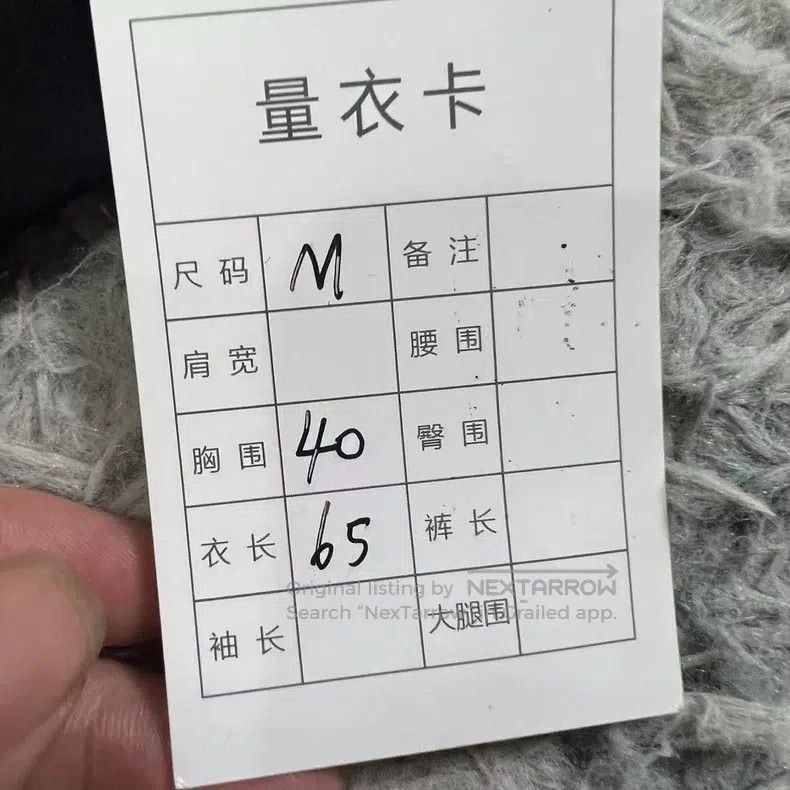 量衣卡
尺码 M 备注
肩宽 腰围
胸围 40 臀围
衣长 65 裤长
袖长 大腿围
Original listing by NEXTARROW
Search “NexTarrow Grailed app.